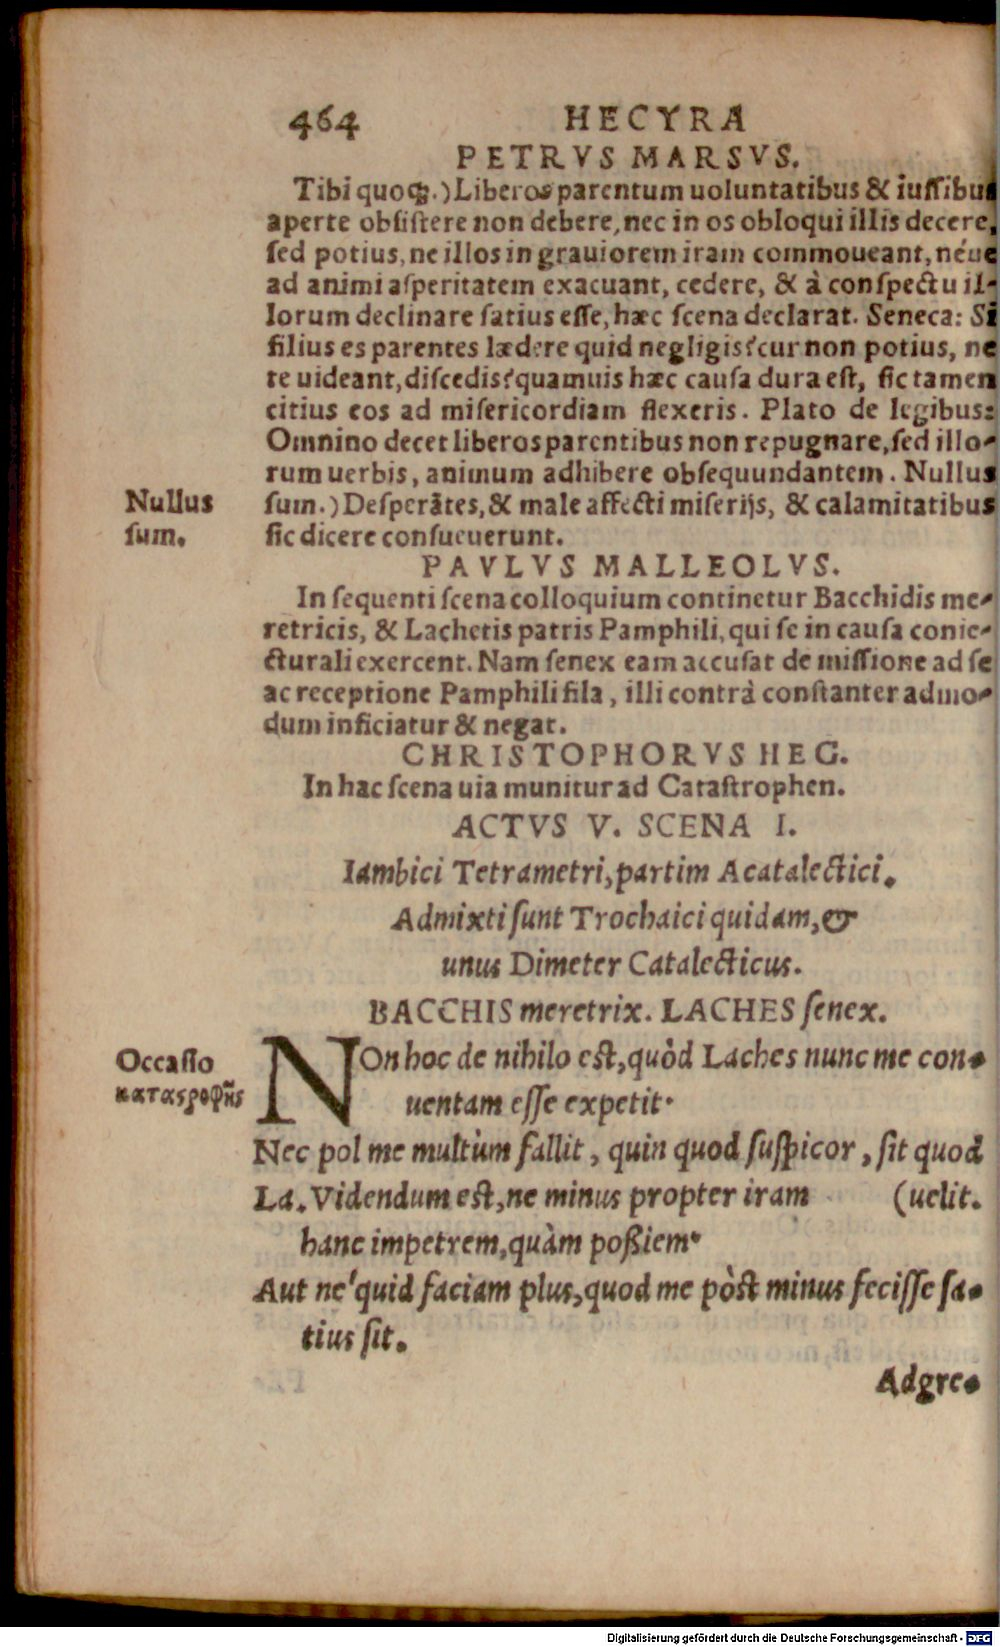 464 HECYRA
PETRVS MARSVS.
Tibi quoqꝫ.) Liberos parentum uoluntatibus & iuſſibus
aperte obſiſtere non debere, nec in os obloqui illis decere,
ſed potius, ne illos in grauiorem iram commoueant, néue
ad animi aſperitatem exacuant, cedere, & à conſpectu il-
lorum declinare ſatius eſſe, hæc ſcena declarat. Seneca: Si
filius es parentes lædere quid negligis? cur non potius, ne
te uideant, diſcedis? quamuis hæc cauſa dura eſt, ſic tamen
citius eos ad miſericordiam flexeris. Plato de legibus:
Omnino decet liberos parentibus non repugnare, ſed illo-
rum uerbis, animum adhibere obſequundantem. Nullus
Nullus
ſum.
ſum.) Deſperātes, & male affecti miſerijs, & calamitatibus
ſic dicere conſueuerunt.
PAVLVS MALLEOLVS.
In ſequenti ſcena colloquium continetur Bacchidis me-
retricis, & Lachetis patris Pamphili, qui ſe in cauſa conie-
cturali exercent. Nam ſenex eam accuſat de miſſione ad ſe
ac receptione Pamphili fila, illi contrà conſtanter admo-
dum inficiatur & negat.
CHRISTOPHORVS HEG.
In hac ſcena uia munitur ad Cataſtrophen.
ACTVS V. SCENA I.
Iambici Tetrametri, partim Acatalectici.
Admixti ſunt Trochaici quidam, &
unus Dimeter Catalecticus.
BACCHIS meretrix. LACHES ſenex.
Occaſio
καταϛροφῆς
NOn hoc de nihilo eſt, quòd Laches nunc me con-
uentam eſſe expetit.
Nec pol me multùm fallit, quin quod ſuſpicor, ſit quod
La. Videndum eſt, ne minus propter iram (uelit.
hanc impetrem, quàm poßiem.
Aut ne'quid faciam plus, quod me pòſt minus feciſſe ſa-
tius ſit.
Adgre-
Digitalisierung gefördert durch die Deutsche Forschungsgemeinschaft - DFG